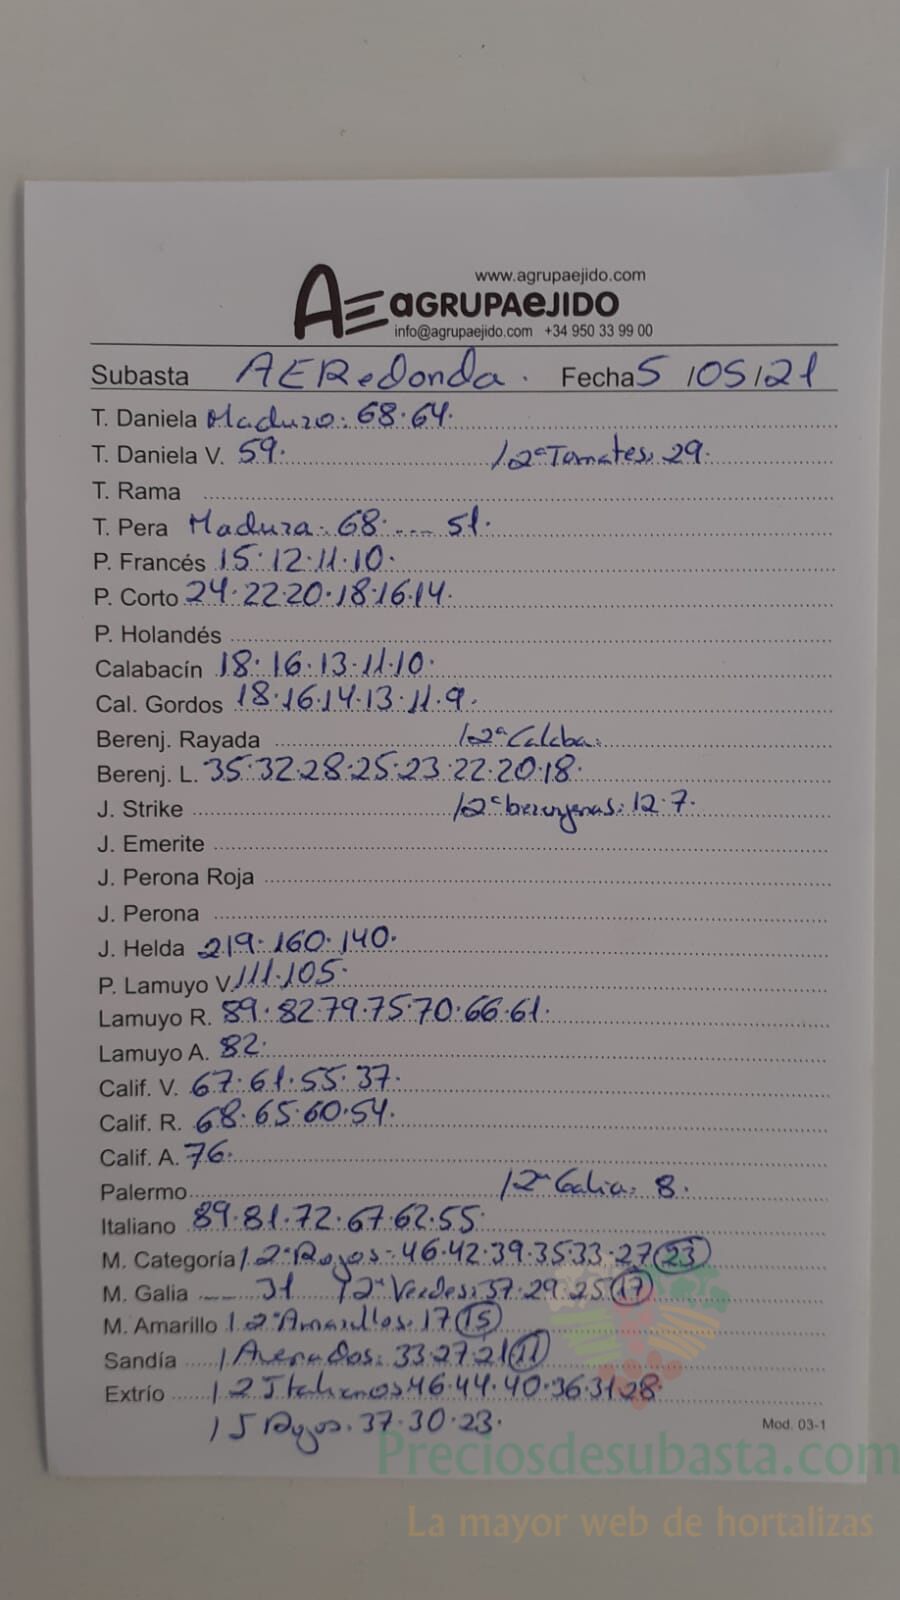 www.agrupaejido.com
AE aGRUPAeJIDO
info@agrupaejido.com +34 950 33 99 00
Subasta AERedonda. Fecha 5 /05/21
T. Daniela Maduro: 68·64.
T. Daniela V. 59. /2ªTomates: 29.
T. Rama
T. Pera Madura: 68. --- 51.
P. Francés 15·12·11·10.
P. Corto 24·22·20·18·16·14.
P. Holandés
Calabacín 18·16·13·11·10.
Cal. Gordos 18·16·14·13·11·9.
Berenj. Rayada /2ª Calaba:
Berenj. L. 35·32·28·25·23·22·20·18.
J. Strike /2ª berenjenas: 12·7.
J. Emerite
J. Perona Roja
J. Perona
J. Helda 219·160·140.
P. Lamuyo V. 111·105.
Lamuyo R. 89·82·79·75·70·66·61.
Lamuyo A. 82.
Calif. V. 67·61·55·37.
Calif. R. 68·65·60·54.
Calif. A. 76.
Palermo /2ª Galia: 8.
Italiano 89·81·72·67·62·55.
M. Categoría /2ª Rojos: 46·42·39·35·33·27 23
M. Galia --- 31 /2ª Verdes: 37·29·25 17
M. Amarillo /2ª Amarillos: 17 15
Sandía / 33·27·21 11
Extrío /2 Italianos 46·44·40·36·31·28
/ J Rojos. 37·30·23.
Mod. 03-1
Preciosdesubasta.com
La mayor web de hortalizas